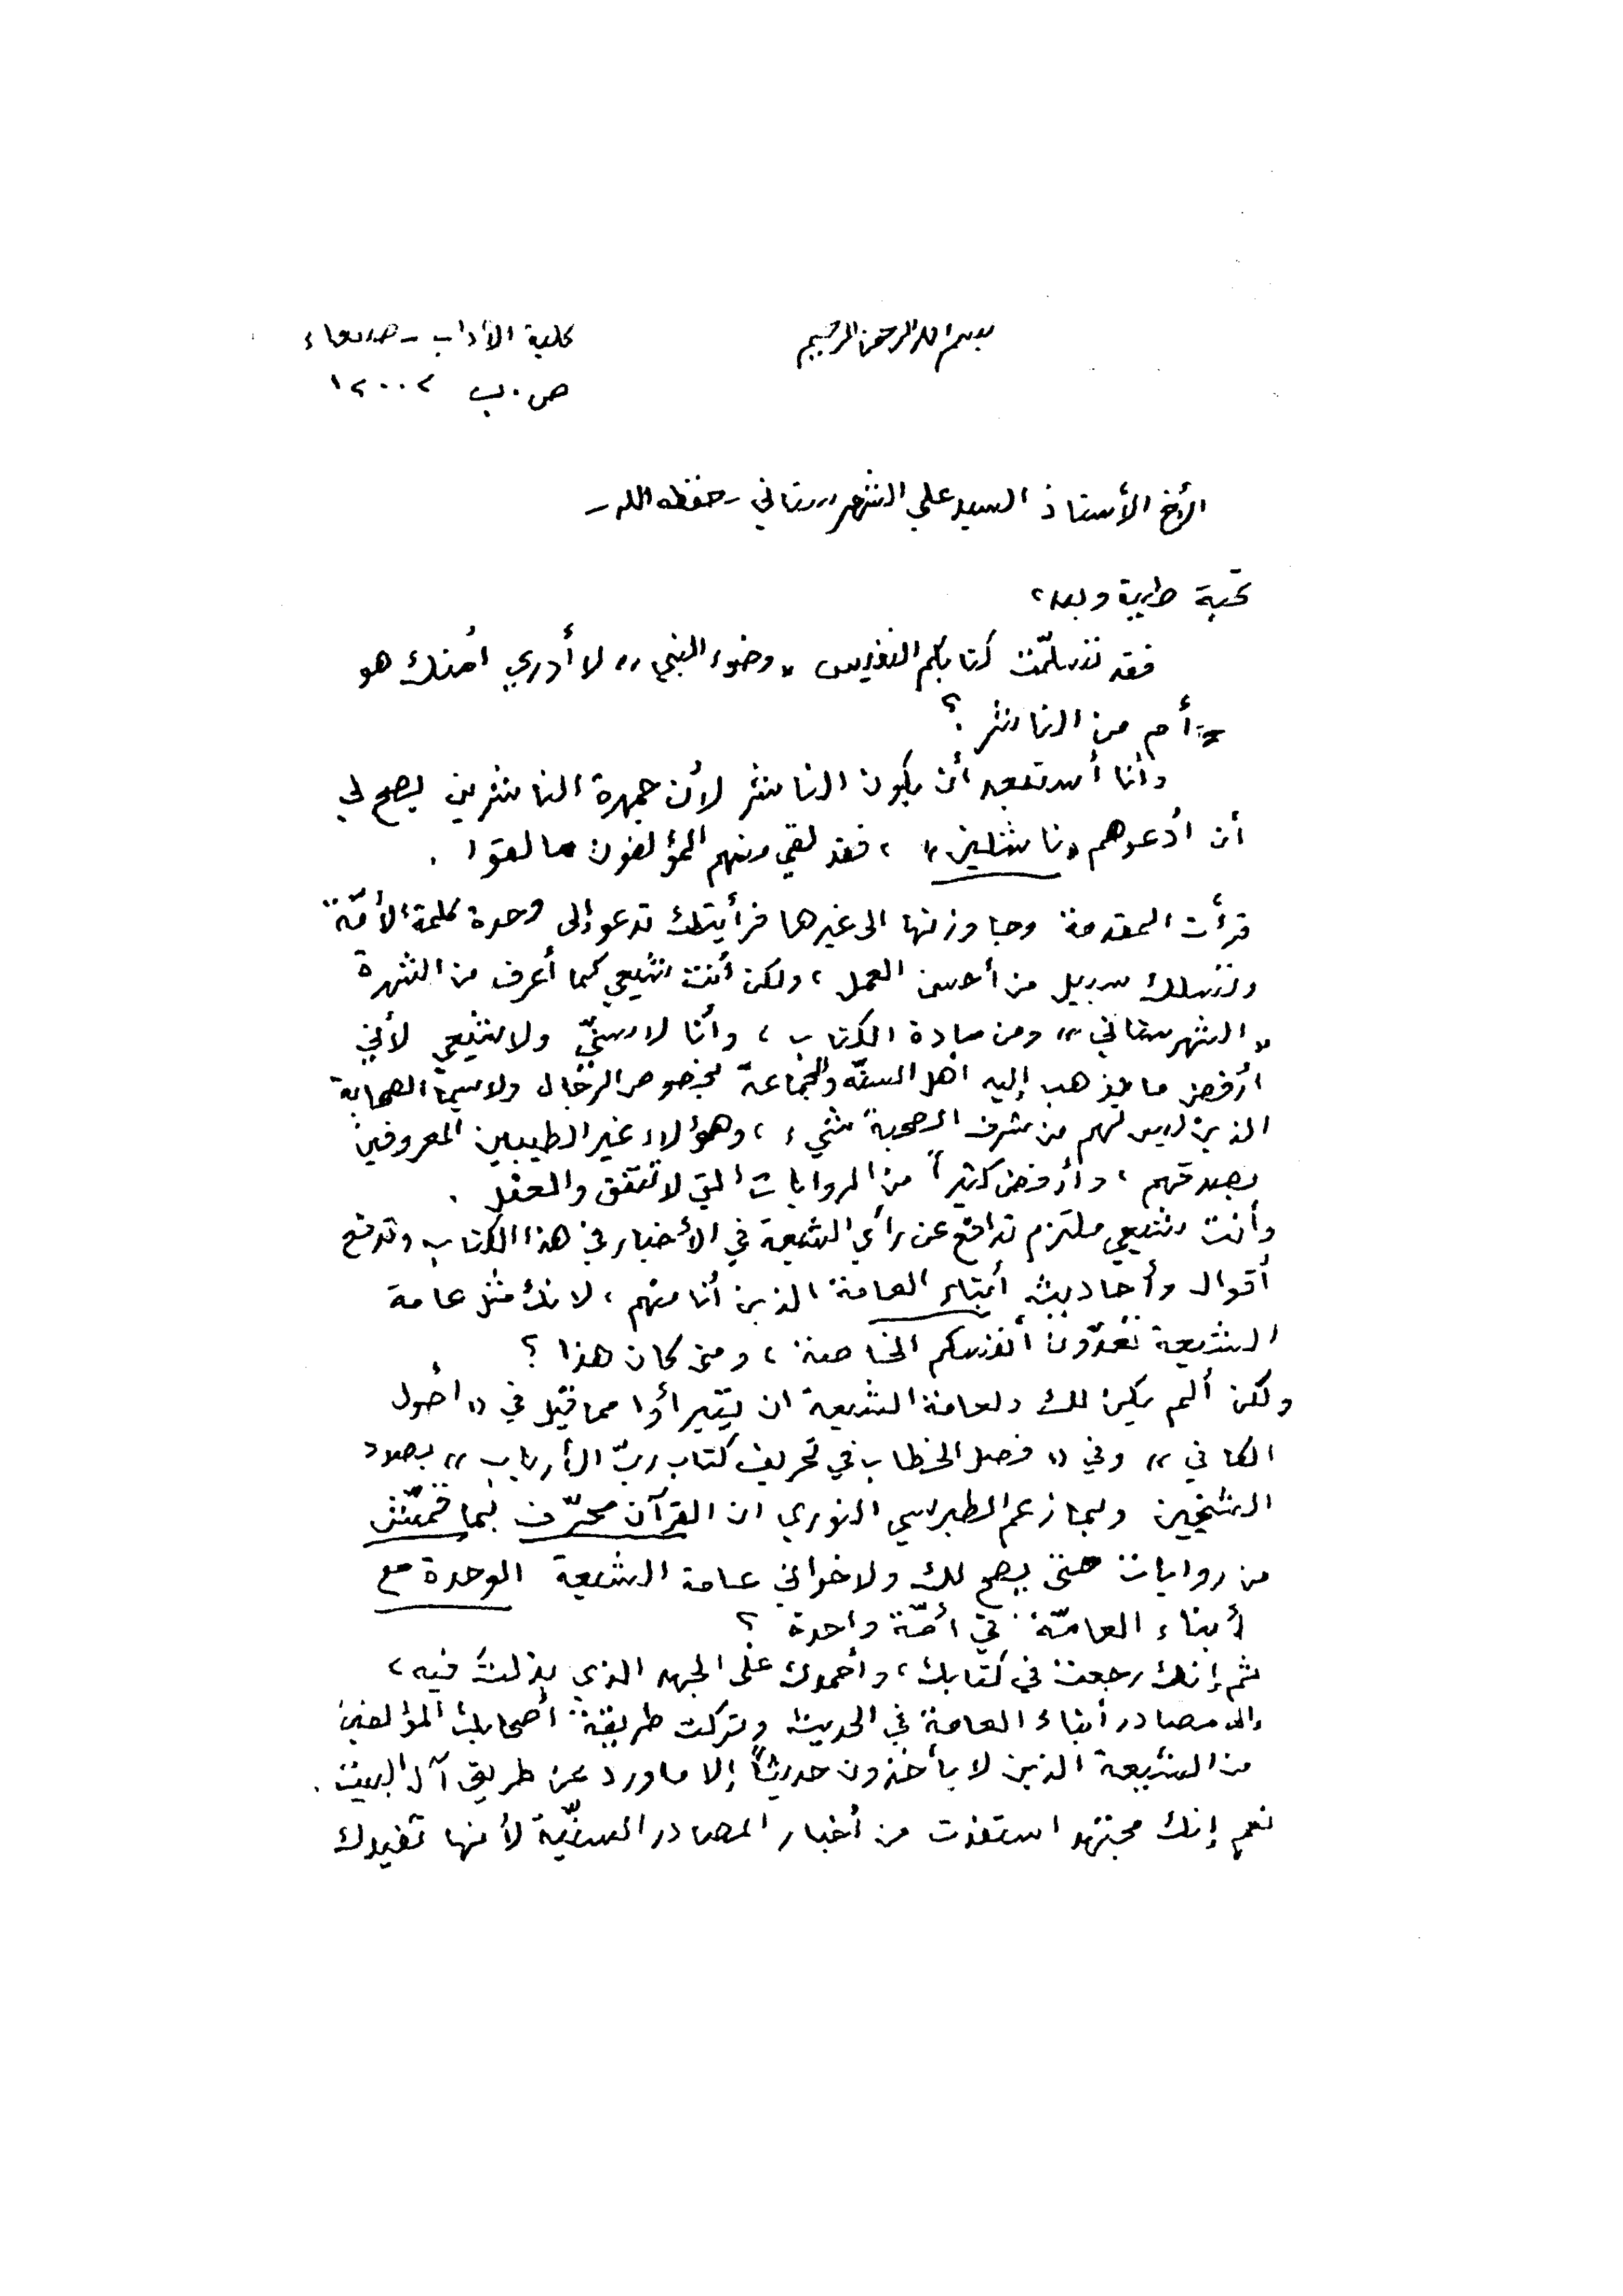 بسم الله الرحمن الرحيم
كلية الآداب - صنعاء
ص.ب ١٢٠٠٢
الأخ الأستاذ السيد علي الشهرستاني - حفظه الله -
تحية طيبة وبعد،
فقد تسلّمت كتابكم النفيس «وضوء النبي» لا أدري أمنك هو
أم من الناشر؟
وأنا أستبعد أن يكون الناشر لأن جمهرة الناشرين يصح لي
أن أدعوهم «ناشلين»، فقد لقي منهم المؤلفون ما لقوا.
قرأت المقدمة وجاوزتها الى غيرها فرأيتك تدعو إلى وحدة كلمة الأمّة
وتسلك سبيل من أحسن العمل، ولكن أنت شيعي كما أعرف من الشهرة
«الشهرستاني» ومن مادة الكتاب، وأنا لا سنيّ ولا شيعي لأني
أرفض ما يذهب إليه أهل السنّة والجماعة بخصوص الرجال ولا سيما الصحابة
الذين ليس لهم من شرف الصحبة شيء، وهؤلاء غير الطيبين المعروفين
بصدقهم، وأرفض كثيراً من الروايات التي لا تتفق والعقل.
وأنت شيعي ملتزم تدافع عن رأي الشيعة في الأخبار في هذا الكتاب وتدفع
أقوال وأحاديث أبناء العامة الذين أنا منهم، لانك مثل عامة
الشيعة تعدّون أنفسكم الخاصة، ومتى كان هذا؟
ولكن ألم يكن لك ولعامة الشيعة ان يتبرأوا مما قيل في «أصول
الكافي» وفي «فصل الخطاب في تحريف كتاب ربّ الأرباب» بصدد
الشيخين وبما زعم الطبرسي النوري ان القرآن محرّف بما قمّش
من روايات حتى يصح لك ولاخواني عامة الشيعة الوحدة مع
أبناء العامّة في أمّة واحدة؟
ثم إنك رجعت في كتابك، وأحمدك على الجهد الذي بذلت فيه،
إلى مصادر أبناء العامة في الحديث وتركت طريقة أصحابك المؤلفين
من الشيعة الذين لا يأخذون حديثاً إلا ما ورد عن طريق آل البيت.
نعم إنك مجتهد استفدت من أخبار المصادر السنّية لأنها تفيدك